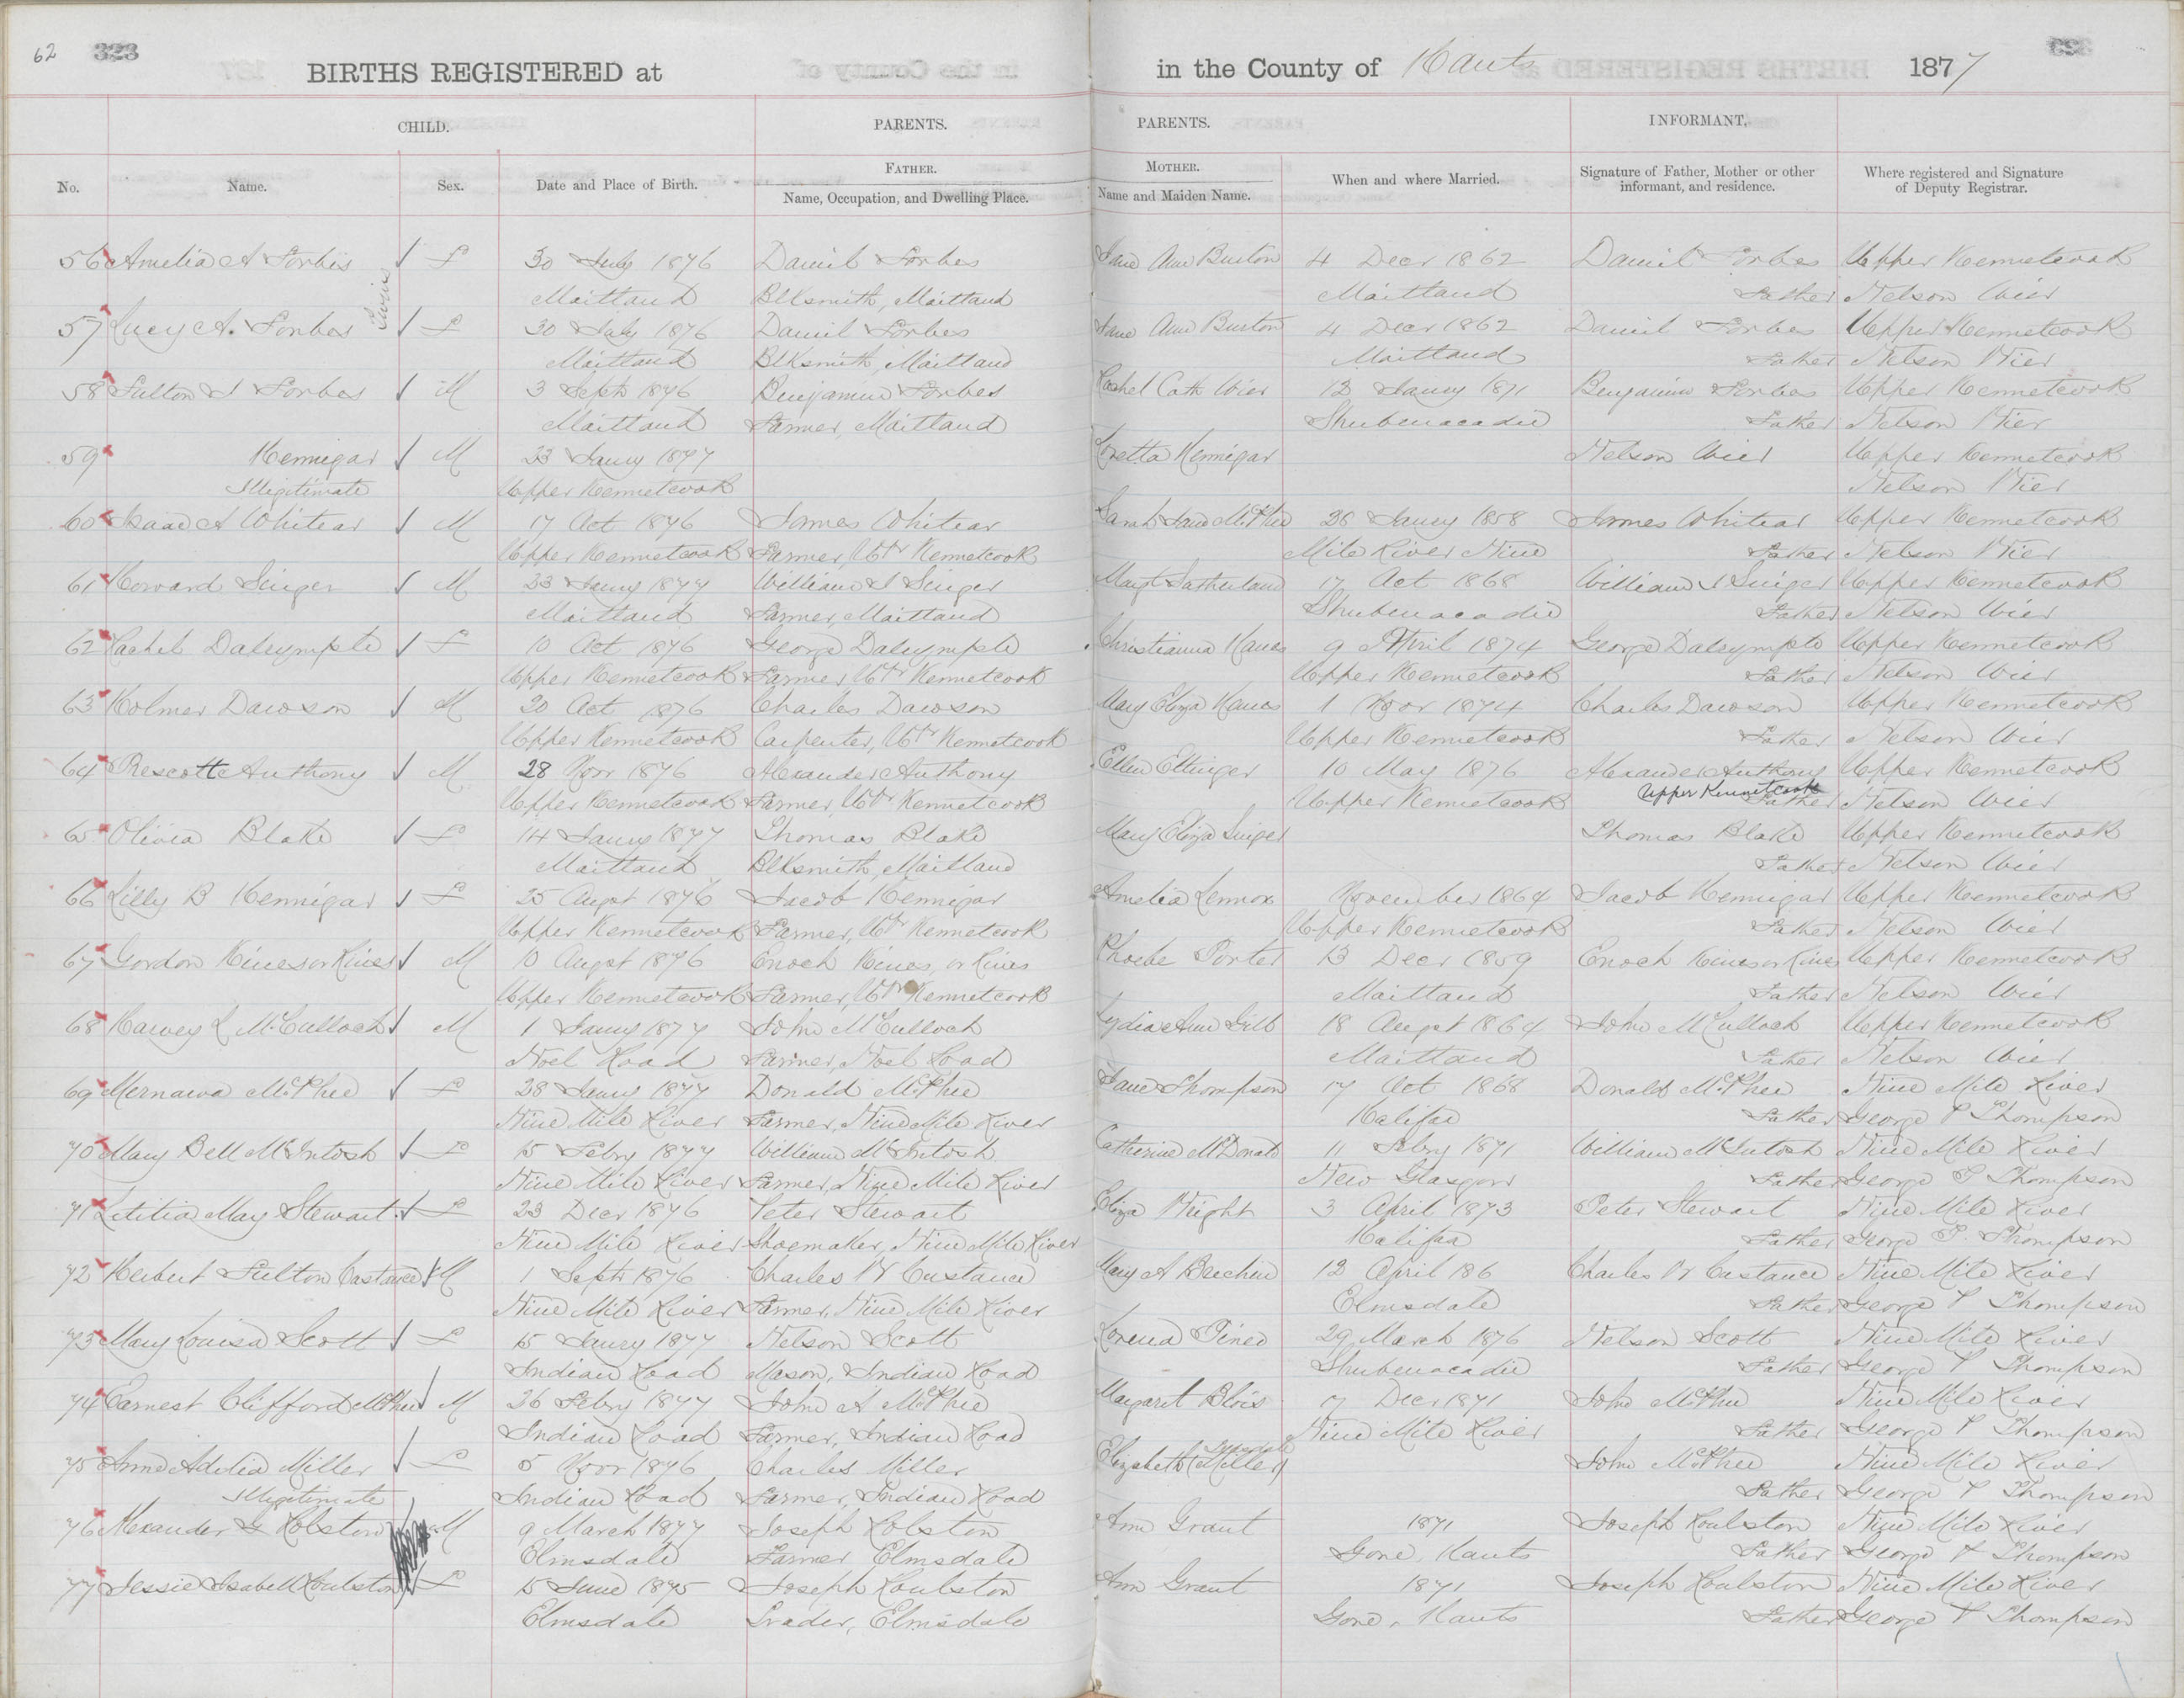 62 323
BIRTHS REGISTERED at in the County of Hants 1877
CHILD. PARENTS. PARENTS. INFORMANT.
No. Name. Sex. Date and Place of Birth. FATHER. Name, Occupation, and Dwelling Place. MOTHER. Name and Maiden Name. When and where Married. Signature of Father, Mother or other informant, and residence. Where registered and Signature of Deputy Registrar.
56 Amelia A Forbes F 30 July 1876 Daniel Forbes Jane Ann Burton 4 Decr 1862 Daniel Forbes Upper Kennetcook
Twins
Maitland Blksmith, Maitland Maitland Father Nelson Wier
57 Lucy A. Forbes F 30 July 1876 Daniel Forbes Jane Ann Burton 4 Decr 1862 Daniel Forbes Upper Kennetcook
Maitland Blksmith, Maitland Maitland Father Nelson Wier
58 Fulton S Forbes M 3 Septr 1876 Benjamin Forbes Rachel Cath Wier 12 Jany 1871 Benjamin Forbes Upper Kennetcook
Maitland Farmer, Maitland Shubenacadie Father Nelson Wier
59 Hennigar M 23 Jany 1877 Loretta Hennigar Nelson Wier Upper Kennetcook
Illigitimate Upper Kennetcook Nelson Wier
60 Isaac A Whitear M 17 Oct 1876 James Whitear Sarah Jane McPhee 28 Jany 1858 James Whitear Upper Kennetcook
Upper Kennetcook Farmer, Upr Kennetcook Mile River Nine Father Nelson Wier
61 Howard Singer M 23 Jany 1877 William S Singer Margt Sutherland 17 Oct 1868 William S Singer Upper Kennetcook
Maitland Farmer, Maitland Shubenacadie Father Nelson Wier
62 Rachel Dalrymple F 10 Oct 1876 George Dalrymple Christianna Hanes 9 April 1874 George Dalrymple Upper Kennetcook
Upper Kennetcook Farmer Upr Kennetcook Upper Kennetcook Father Nelson Wier
63 Holmer Dawson M 20 Oct 1876 Charles Dawson Mary Eliza Hanes 1 Novr 1874 Charles Dawson Upper Kennetcook
Upper Kennetcook Carpenter, Upr Kennetcook Upper Kennetcook Father Nelson Wier
64 Prescott Anthony M 28 Novr 1876 Alexander Anthony Ellen Ettinger 10 May 1876 Alexander Anthony Upper Kennetcook
Upper Kennetcook Farmer, Upr Kennetcook Upper Kennetcook Upper Kennetcook Father Nelson Wier
65 Olivia Blake F 14 Jany 1877 Thomas Blake Mary Eliza Singer Thomas Blake Upper Kennetcook
Maitland Blksmith, Maitland Father Nelson Wier
66 Lilly B Hennigar F 25 Augst 1876 Jacob Hennigar Amelia Lennox November 1864 Jacob Hennigar Upper Kennetcook
Upper Kennetcook Farmer, Upr Kennetcook Upper Kennetcook Father Nelson Wier
67 Gordon Hines or Rines M 10 Augst 1876 Enoch Hines, or Rines Phoebe Porter 13 Decr 1859 Enoch Hines or Rines Upper Kennetcook
Upper Kennetcook Farmer, Upr Kennetcook Maitland Father Nelson Wier
68 Harvey L McCulloch M 1 Jany 1877 John McCulloch Lydia Ann 18 Augst 1864 John McCulloch Upper Kennetcook
Noel Road Farmer, Noel Road Maitland Father Nelson Wier
69 McPhee F 28 Jany 1877 Donald McPhee Jane Thompson 17 Oct 1868 Donald McPhee Nine Mile River
Nine Mile River Farmer, Nine Mile River Halifax Father George P Thompson
70 Mary Bell McIntosh F 15 Febry 1877 William McIntosh Catherine McDonald 11 Febry 1871 William McIntosh Nine Mile River
Nine Mile River Farmer, Nine Mile River New Glasgow Father George P Thompson
71 Letitia May Stewart F 23 Decr 1876 Peter Stewart Eliza Wright 3 April 1873 Peter Stewart Nine Mile River
Nine Mile River Shoemaker, Nine Mile River Halifax Father George P. Thompson
72 Herbert Fulton Custance M 1 Septr 1876 Charles W Custance Mary A Beechin 12 April 186 Charles W Custance Nine Mile River
Nine Mile River Farmer, Nine Mile River Elmsdale Father George P Thompson
73 Mary Louisa Scott F 15 Jany 1877 Nelson Scott Lorena Pineo 29 March 1876 Nelson Scott Nine Mile River
Indian Road Mason, Indian Road Shubenacadie Father George P Thompson
74 Earnest Clifford McPhee M 26 Febry 1877 John A McPhee Margaret Blois 17 Decr 1871 John McPhee Nine Mile River
Indian Road Farmer, Indian Road Nine Mile River Father George P Thompson
75 Anne Adelia Miller F 5 Novr 1876 Charles Miller Elizabeth (Miller) John McPhee Nine Mile River
Illigitimate Indian Road Farmer, Indian Road Father George P Thompson
76 Alexander G Rolston M 9 March 1877 Joseph Rolston Ann Grant 1871 Joseph Roulston Nine Mile River
Elmsdale Farmer Elmsdale Gore, Hants Father George P Thompson
77 Jessie Isabell Roulston F 15 June 1875 Joseph Roulston Ann Grant 1871 Joseph Roulston Nine Mile River
Elmsdale Trader, Elmsdale Gore, Hants Father George P Thompson